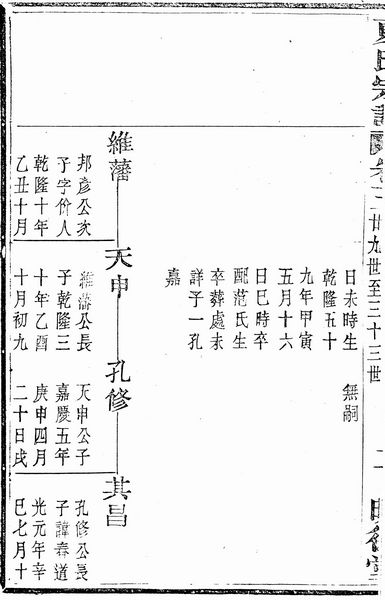 廿九世至三十三世
日未時生
無嗣
乾隆五十
九年甲寅
五月十六
日巳時卒
配范氏生
卒葬處未
詳子一孔
嘉
維藩
天申
孔修
其昌
邦彥公次
子字价人
乾隆十年
乙丑十月
維藩公長
子乾隆三
十年乙酉
十月初九
天申公子
嘉慶五年
庚申四月
二十日戌
孔修公長
子諱春道
光元年辛
巳七月十